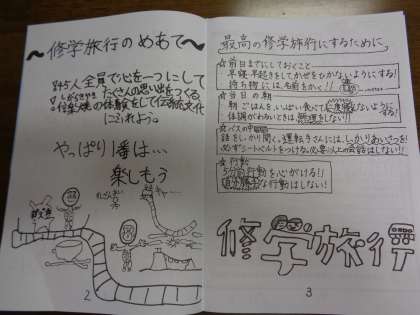 ～修学旅行のめあて～
845人全員で心を一つにして
たくさんの思い出をつくる
しがらきやき
信楽焼の体験をして伝統文化
にふれよう。
やっぱり1番は…
楽しもう
2
最高の修学旅行にするために
☆前日までにしておくこと
・早寝・早起きをしてかぜをひかないようにする!
・持ち物には名前をかく!!
☆当日の朝
・朝ごはんをいっぱい食べて
ないようにする
・体調がわるいときは無理をしない!!
☆バスの中
・話をしっかり聞く。運転手さんには、しっかりあいさつを!
・必ずシートベルトをつける。必要以上の会話はしない!!
☆行動
・5分前行動を心がける!!
・自分勝手な行動はしない!
修学旅行
3